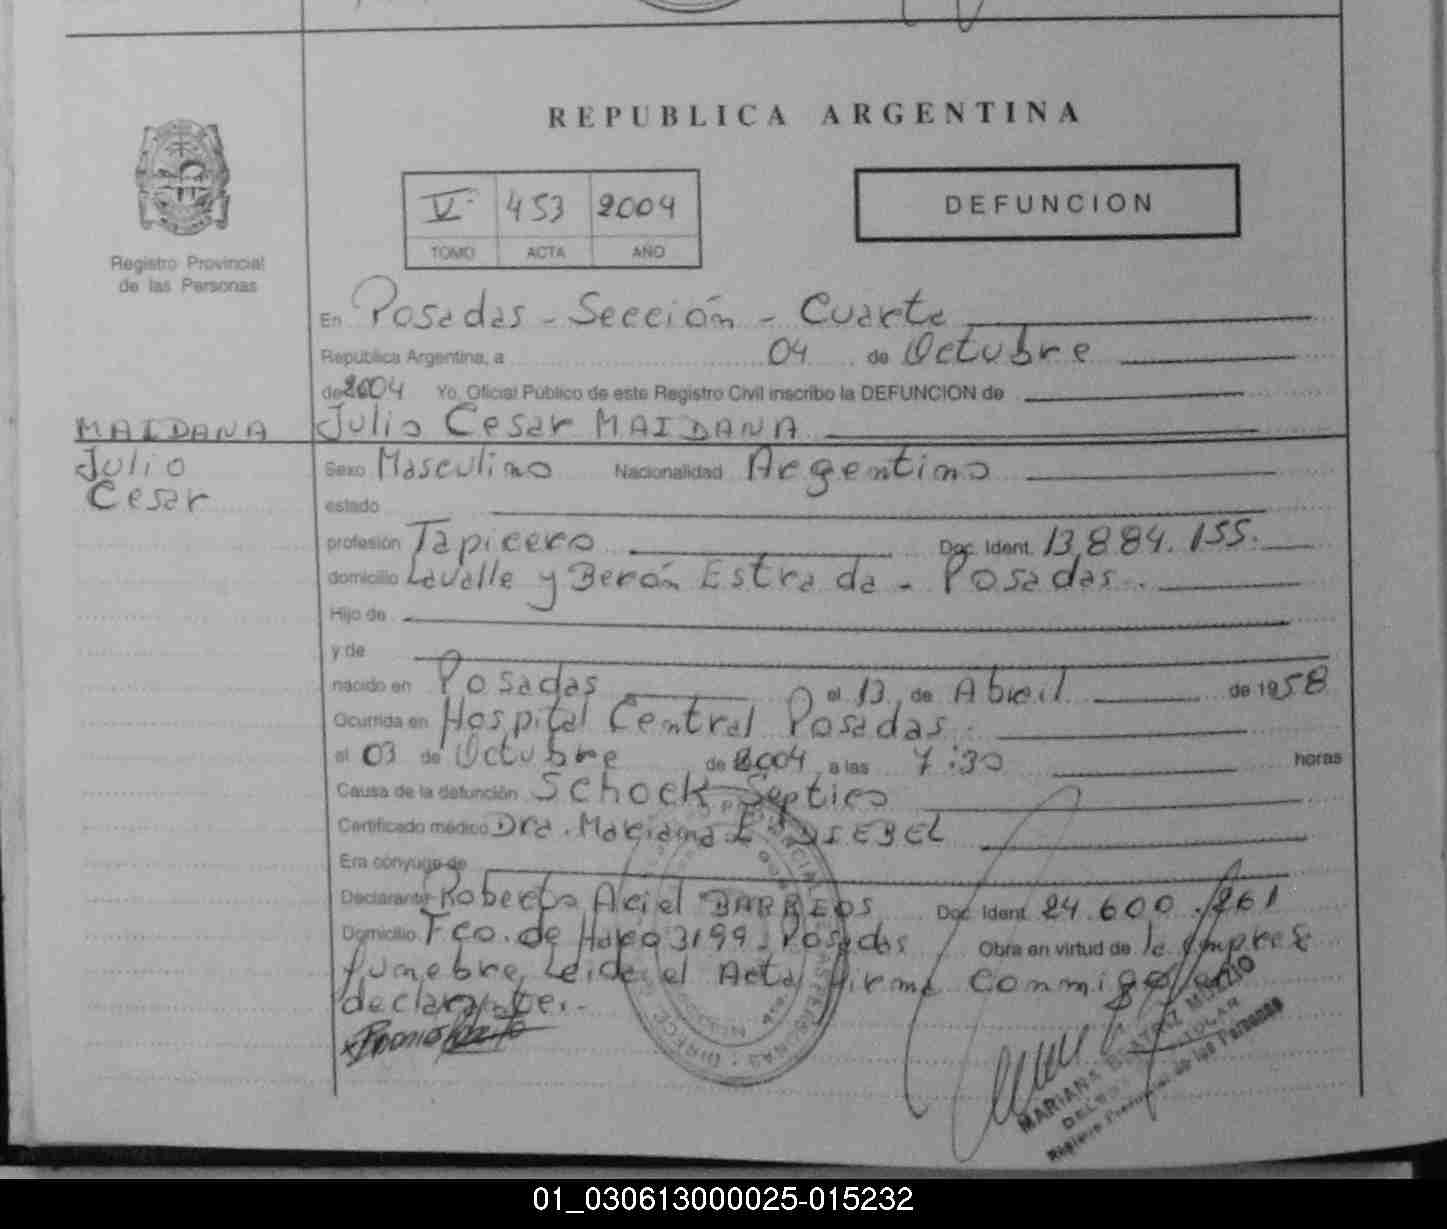 REPUBLICA ARGENTINA
V 453 2004
TOMO ACTA AÑO
DEFUNCION
Registro Provincial
de las Personas
En Posadas - Sección - Cuarta
República Argentina, a 04 de Octubre
de 2004 Yo, Oficial Público de este Registro Civil inscribo la DEFUNCION de
MAIDANA
Julio
Cesar
Julio Cesar MAIDANA
Sexo Masculino Nacionalidad Argentino
estado
profesión Tapicero Doc. Ident. 13.884.155.
domicilio Lavalle y Berón Estrada - Posadas.
Hijo de
y de
nacido en Posadas el 13 de Abril de 1958
Ocurrida en Hospital Central Posadas.
el 03 de Octubre de 2004 a las 7:30 horas
Causa de la defunción Schock Septico
Certificado médico Dra. Mariana
Era cónyuge de
Declarante Roberto Ariel BARREOS Doc. Ident. 24.600.261
Domicilio Fco. de Haro 3199 - Posadas Obra en virtud de la Empresa
funebre, Leida el Acta, firma conmigo el
declarante.-
MARIANA BEATRIZ
Registro Provincial de las Personas
01_030613000025-015232